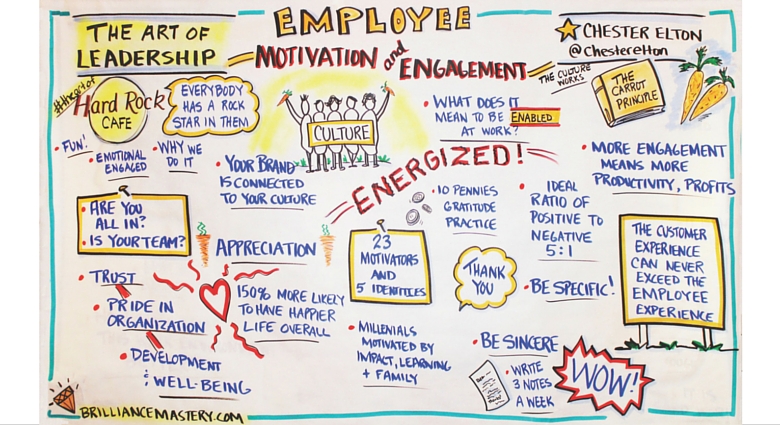 THE ART OF
LEADERSHIP
EMPLOYEE
MOTIVATION and
ENGAGEMENT
CHESTER ELTON
@chesterelton
THE CULTURE
WORKS
THE
CARROT
PRINCIPLE
Hard Rock
CAFE
EVERYBODY
HAS A ROCK
STAR IN THEM
• FUN!
• EMOTIONAL
ENGAGED
• WHY WE
DO IT
CULTURE
• WHAT DOES IT
MEAN TO BE ENABLED
AT WORK?
ENERGIZED!
• YOUR BRAND
IS CONNECTED
TO YOUR CULTURE
• MORE ENGAGEMENT
MEANS MORE
PRODUCTIVITY, PROFITS
• ARE YOU
ALL IN?
• IS YOUR TEAM?
APPRECIATION
150% MORE LIKELY
TO HAVE HAPPIER
LIFE OVERALL
• TRUST
• PRIDE IN
ORGANIZATION
• DEVELOPMENT
& WELL-BEING
• 10 PENNIES
GRATITUDE
PRACTICE
• IDEAL
RATIO OF
POSITIVE TO
NEGATIVE
5:1
23
MOTIVATORS
AND
5 IDENTITIES
THANK
YOU
• BE SPECIFIC!
THE CUSTOMER
EXPERIENCE
CAN NEVER
EXCEED THE
EMPLOYEE
EXPERIENCE
• MILLENIALS
MOTIVATED BY
IMPACT, LEARNING
+ FAMILY
• BE SINCERE
• WRITE
3 NOTES
A WEEK
WOW!
BRILLIANCEMASTERY.COM